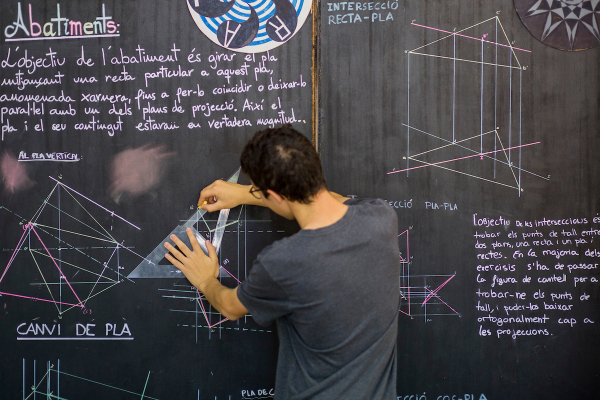 Abatiments:
L'objectiu de l'abatiment és girar el pla
mitjançant una recta particular a aquest pla,
anomenada xarnera, fins a fer-lo coincidir o deixar-lo
paral·lel amb un dels plans de projecció. Així el
pla i el seu contingut estaran en vertadera magnitud...
AL PLA VERTICAL:
CANVI DE PLÀ
PLA DE C
INTERSECCIÓ
RECTA-PLA
SECCIÓ PLA-PLA
L'objectiu de les interseccions és
trobar els punts de tall entre
dos plans, una recta i un pla i
rectes. En la majoria dels
exercicis s'ha de passar
la figura de cantell per a
trobar-ne els punts de
tall, i poder-los baixar
ortogonalment cap a
les projeccions.